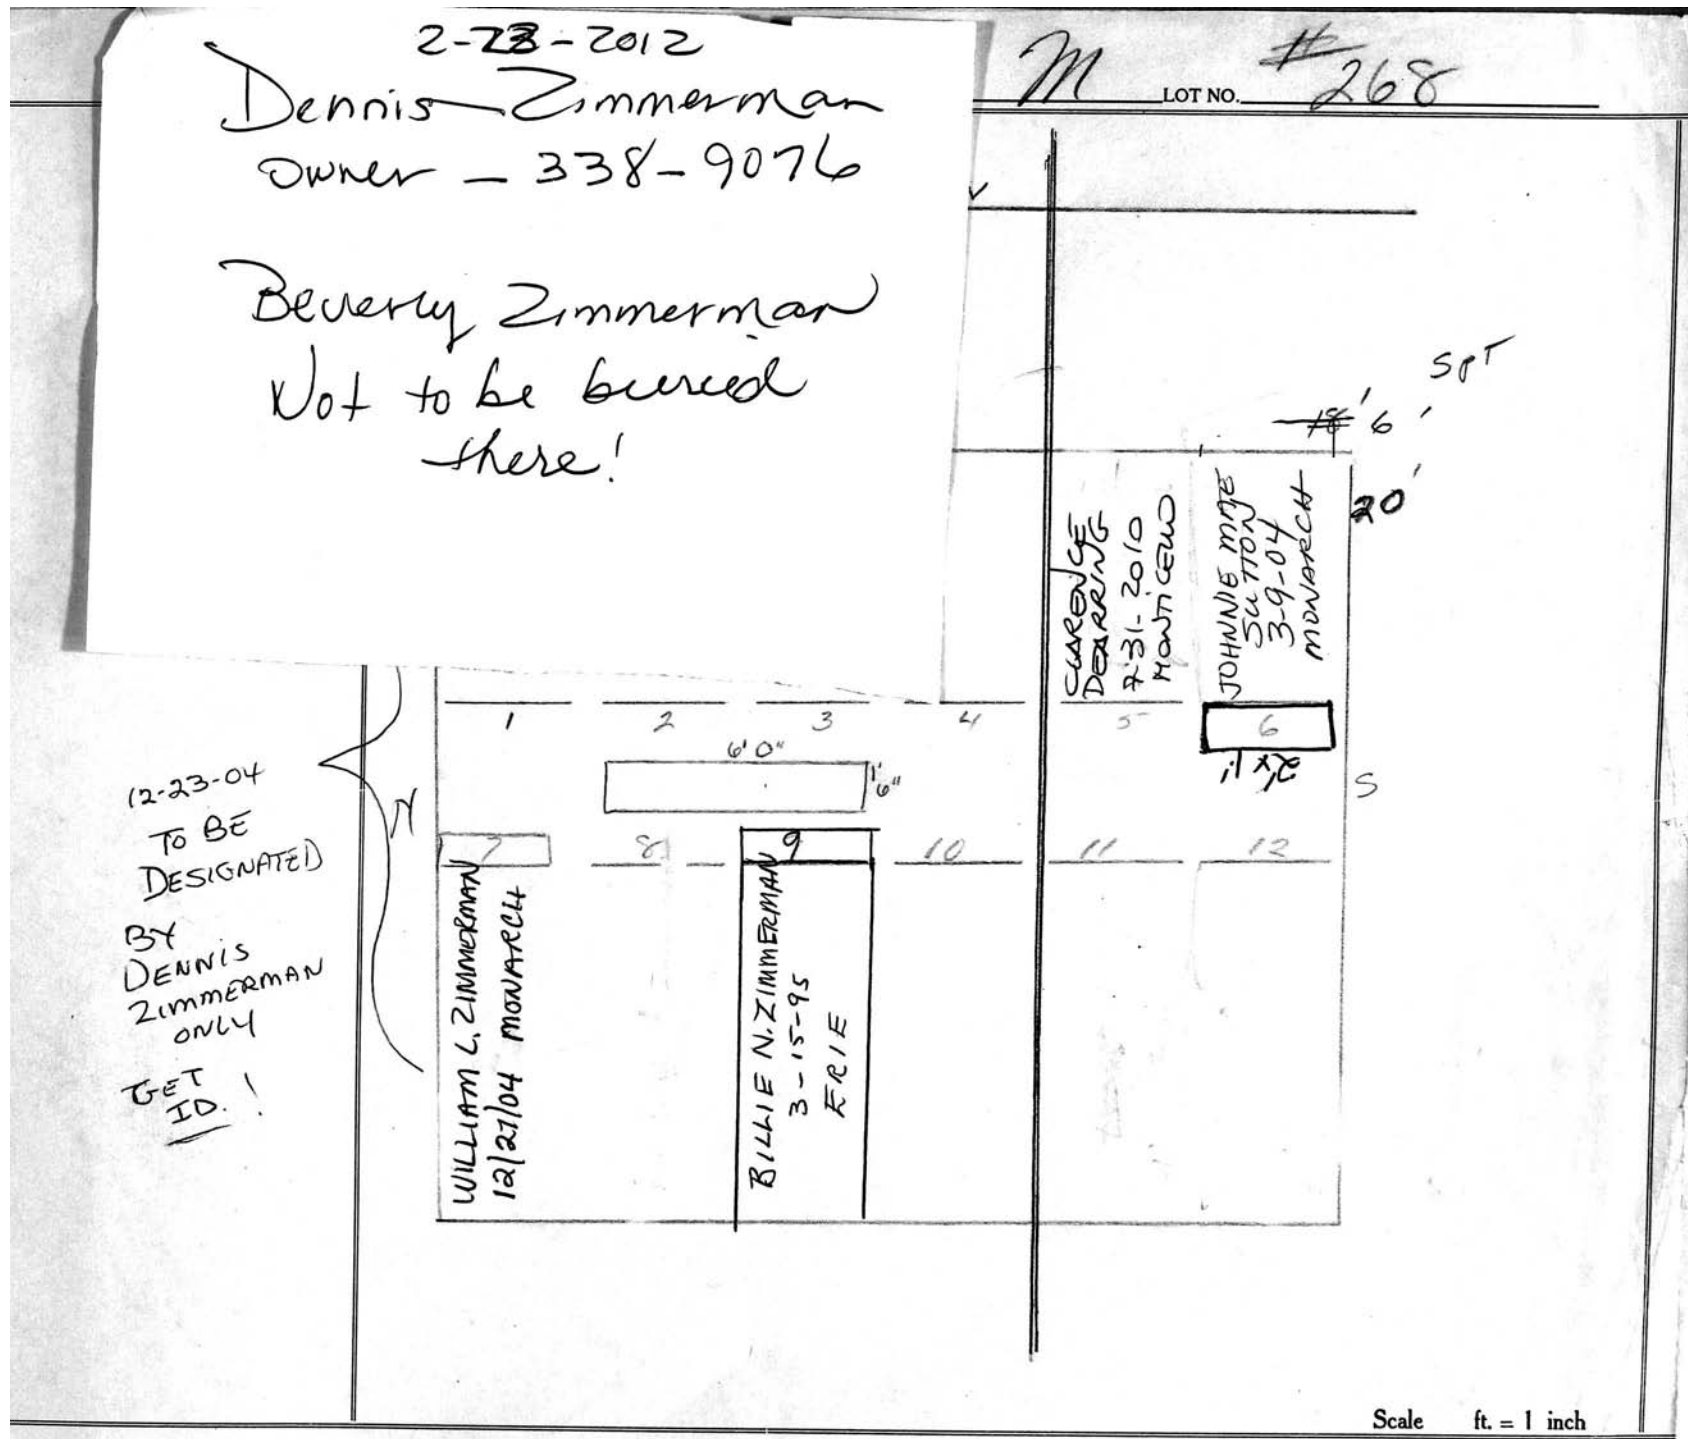 2-23-2012
Dennis Zimmerman
owner - 338-9076
Beverly Zimmerman
Not to be buried
there!
M LOT NO. # 268
SPT
18' 6'
20'
CLARENCE
DEARRING
7-31-2010
MONTICELLO
JOHNNIE MAE
SUTTON
3-9-04
MONARCH
1 2 3 4 5 6
2' x 1'
6' 0"
1' 6"
12-23-04
TO BE
DESIGNATED
BY
DENNIS
ZIMMERMAN
ONLY
GET
ID. !
N
S
7 8 9 10 11 12
WILLIAM L. ZIMMERMAN
12/27/04 MONARCH
BILLIE N. ZIMMERMAN
3-15-95
ERIE
Scale ft. = 1 inch